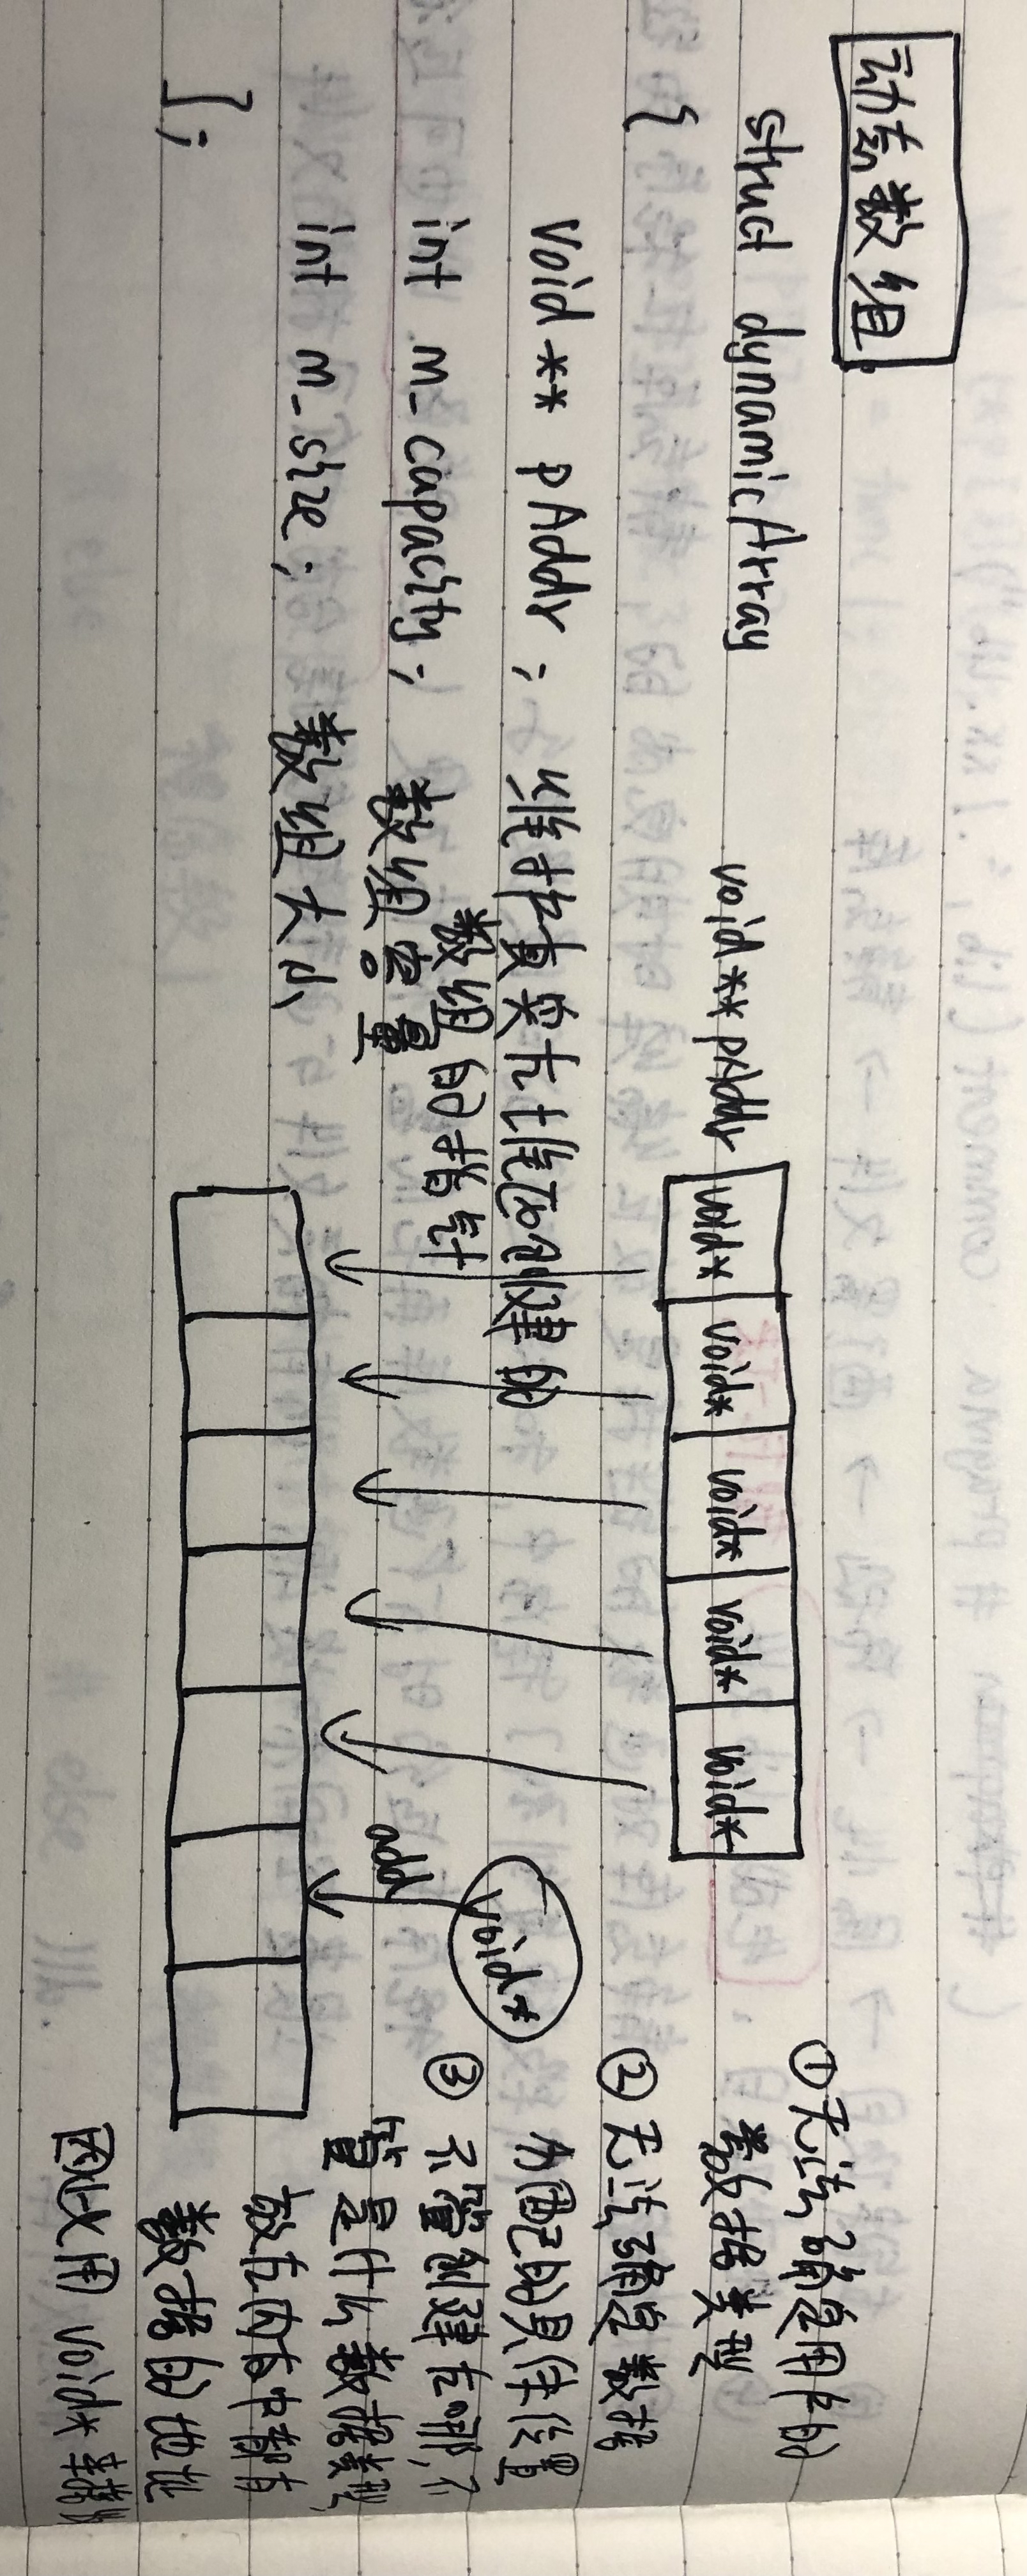 动态数组
struct dynamicArray
{
void ** pAddr ; 维护真实在堆区创建的
数组的指针
int m_capacity ; 数组容量
int m_size ; 数组大小
};
void ** pAddr void* void* void* void* void*
void*
add
① 无法确定用户的
数据类型
② 无法确定数据
分配的具体位置
③ 不管创建在哪,不
管是什么数据类型,
放在内存中都有
数据的地址
因此用 void* 来接收